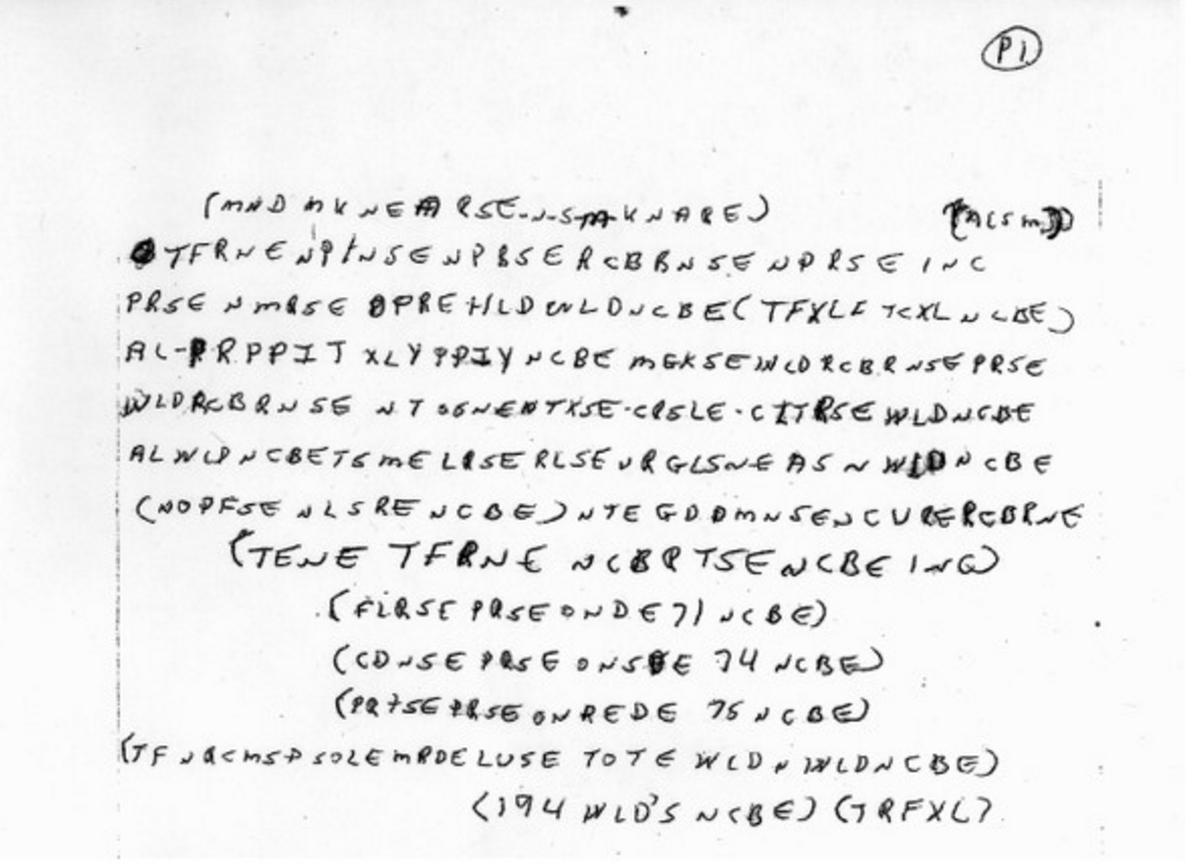 P1
(MND MKNEARSE-N-S-M-KNARE) (ACSM)
TFRNENPINSENPBSERCBBRNSENPRSEINC
PRSENMRSEOPREHLDWLDNCBE(TFXLFTCXLNCBE)
AL-PRPPIT XLYPPIYNCBE MGKSEWLDRCBRNSEPRSE
WLDRCBRNSE NTSGNENTXSE-CRSLE-CITRSEWLDNCBE
ALWLPNCBETSMELRSERLSEURGLSNEASNWLDNCBE
(NOPFSENLSRENCBE)NTEGDDMNSENCURERCBRNE
(TENETFRNENCBRTSENCBEING)
(FLRSEPRSEONDE71NCBE)
(CDNSEPRSEONSDE74NCBE)
(PRTSEPRSEONREDE75NCBE)
(TFNRCMSPSOLEMRDELUSETOTEWLDNWLDNCBE)
(194WLD'SNCBE)(TRFXL)